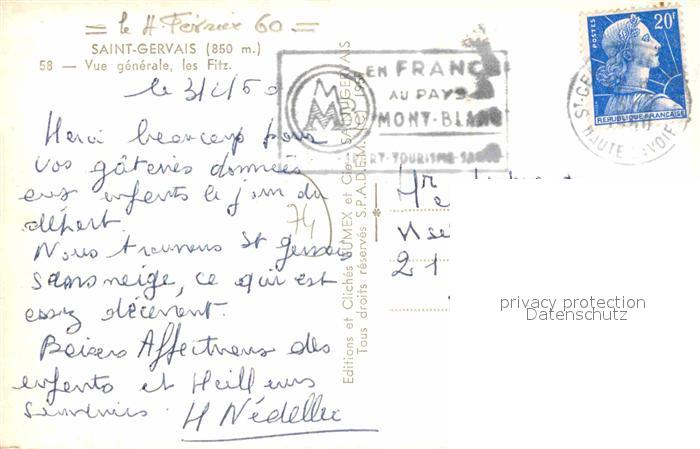 = le 4 Février 60 =
SAINT-GERVAIS (850 m.)
58 — Vue générale, les Fitz.
le 3/2/60
Merci beaucoup pour
vos gâteries données
aux enfants le jour du
départ.
Nous trouvons St Gervais
sans neige, ce qui est
assez décevant.
Baisers Affectueux des
enfants et Meilleurs
Souvenirs.
H Nédellec
74
Editions et Clichés GUMEX et Cie - ST-GERVAIS
Tous droits réservés S.P.A.D.E.M.
EN FRANCE
AU PAYS
MONT-BLANC
TOURISME
20F
POSTES
REPUBLIQUE FRANÇAISE
ST-GE
HAUTE SAVOIE
Mr
21
privacy protection
Datenschutz